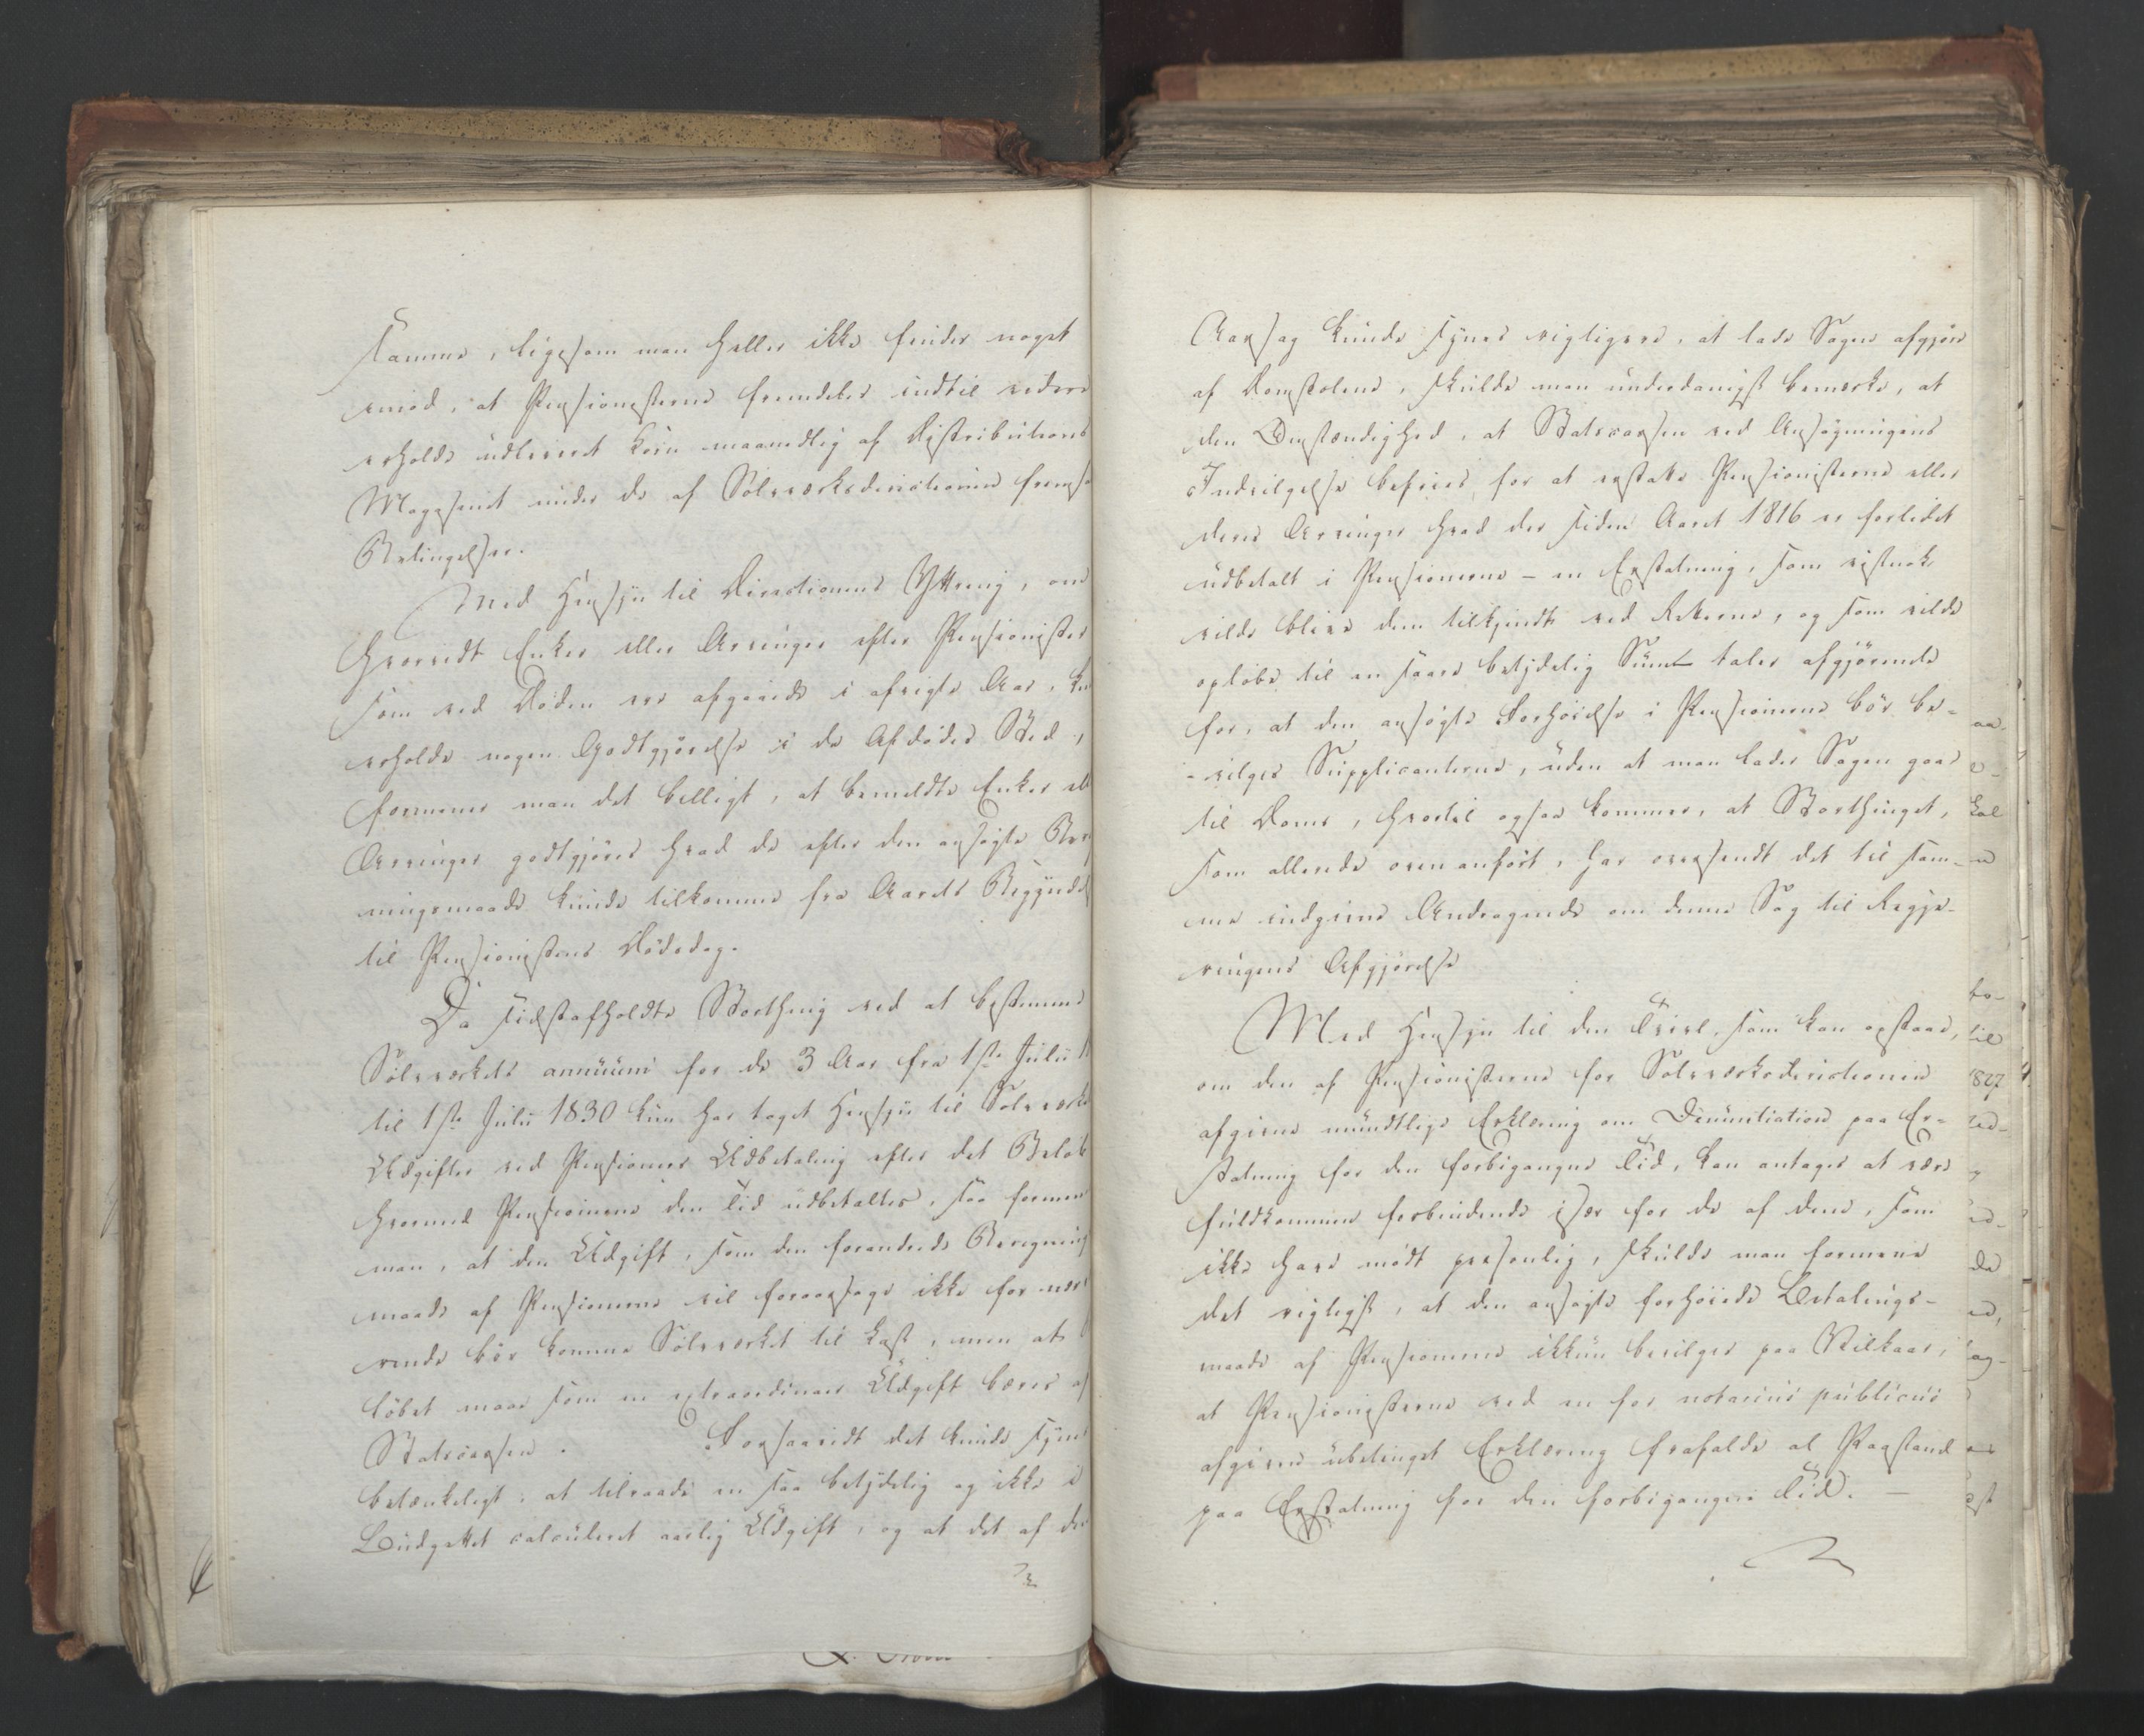 samme, ligesom man heller ikke finder noget
imod, at Pensionisterne fremdeles indtil videre
erholde udleveret Korn maanedlig af Distributions
Magasinet under de af Sølvværksdirectionen fremsa
Betingelser.
Med Hensyn til Directionens Yttring, om
hvorvidt Enker eller Arvinger efter Pensionister
som ved Døden ere afgaaede i afvigte Aar, kun
erholde nogen Godtgjørelse i de Afdødes Sted,
formener man det billigt, at bemeldte Enker ell
Arvinger godtgjøres hvad de efter den ansøgte Bereg
ningsmaade kunde tilkomme fra Aarets Begyndel
til Pensionistens Dødsdag.
Da sidstafholdte Storthing ved at bestemme
Sølvværkets annuum for de 3 Aar fra 1ste Julii 1
til 1ste Julii 1830 kun har taget Hensyn til Sølvværke
Udgifter ved Pensioners Udbetaling efter det Beløb
hvormed Pensionerne den Tid udbetaltes, saa formen
man, at den Udgift, som den forandrede Beregning
maade af Pensionerne vil foraarsage ikke for nær
rende bør komme Sølvværket til Last, men at
løbet maae som en extraordinair Udgift bæres af
Statscassen. Forsaavidt det kunde synes
betænkeligt, at tilraade en saa betydelig og ikke i
Budgettet calculeret aarlig Udgift, og at det af den
Aarsag kunde synes rigtigere, at lade Sagen afgjøre
af Domstolene, skulde man underdanigst bemærke, at
den Omstændighed, at Statscassen ved Ansøgningens
Indvilgelse befries for at erstatte Pensionisterne eller
deres Arvinger hvad der siden Aaret 1816 er forlidet
udbetalt i Pensionerne - en Erstatning, som vistnok
vilde blive dem tilkjendt ved Retterne, og som vilde
opløbe til en saare betydelig Sum - taler afgjørende
for, at den ansøgte Forhøielse i Pensionerne bør be-
-vilges Supplicanterne, uden at man lader Sagen gaae
til Doms, hvortil ogsaa kommer, at Storthinget,
som allerede oven anført, har oversendt det til sam-
me indgivne Andragende om denne Sag til Regje-
ringens Afgjørelse
Med Hensyn til den Tvivl, som kan opstaae,
om den af Pensionisterne for Sølvværksdirectionen
afgivne mundtlige Erklæring om Renuntiation paa Er-
statning for den forbigangne Tid, kan antages at være
fuldkommen forbindende især for de af dem, som
ikke have mødt personlig, skulde man formene
det rigtigst, at den ansøgte forhøiede Betalings-
maade af Pensionerne ikkun bevilges paa Vilkaar,
at Pensionisterne ved en for notarius publicus
afgiven ubetinget Erklæring frafalde al Paastand
paa Erstatning for den forbigangne Tid. -